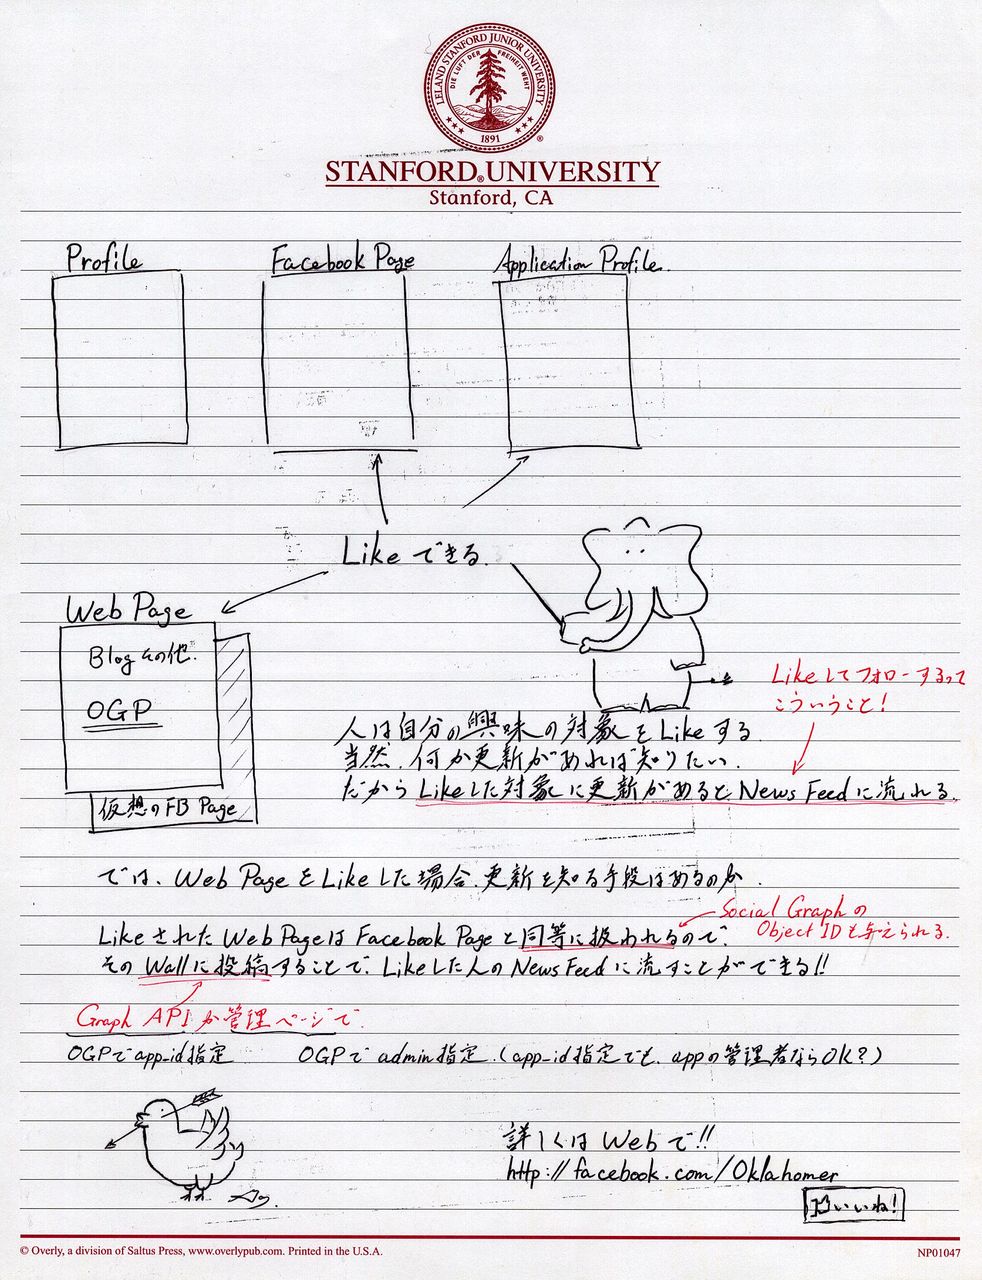 LELAND STANFORD JUNIOR UNIVERSITY
DIE LUFT DER FREIHEIT WEHT
1891
®
STANFORD® UNIVERSITY
Stanford, CA
Profile
Facebook Page
Application Profile.
Likeできる.
Web Page
Blog その他.
OGP
仮想のFB Page
Likeしてフォローするって
こういうこと!
人は自分の興味の対象をLikeする
当然、何か更新があれば知りたい.
だからLikeした対象に更新があるとNews Feedに流れる.
では、Web PageをLikeした場合、更新を知る手段はあるのか.
Social Graphの
Object IDも与えられる.
LikeされたWeb PageはFacebook Pageと同等に扱われるので、
そのWallに投稿することで、Likeした人のNews Feedに流すことができる!!
Graph APIか管理ページで.
OGPでapp_id指定
OGPでadmin指定.(app_id指定でも、appの管理者ならOK?)
詳しくはWebで!!
http://facebook.com/Oklahomer
いいね!
© Overly, a division of Saltus Press, www.overlypub.com. Printed in the U.S.A.
NP01047